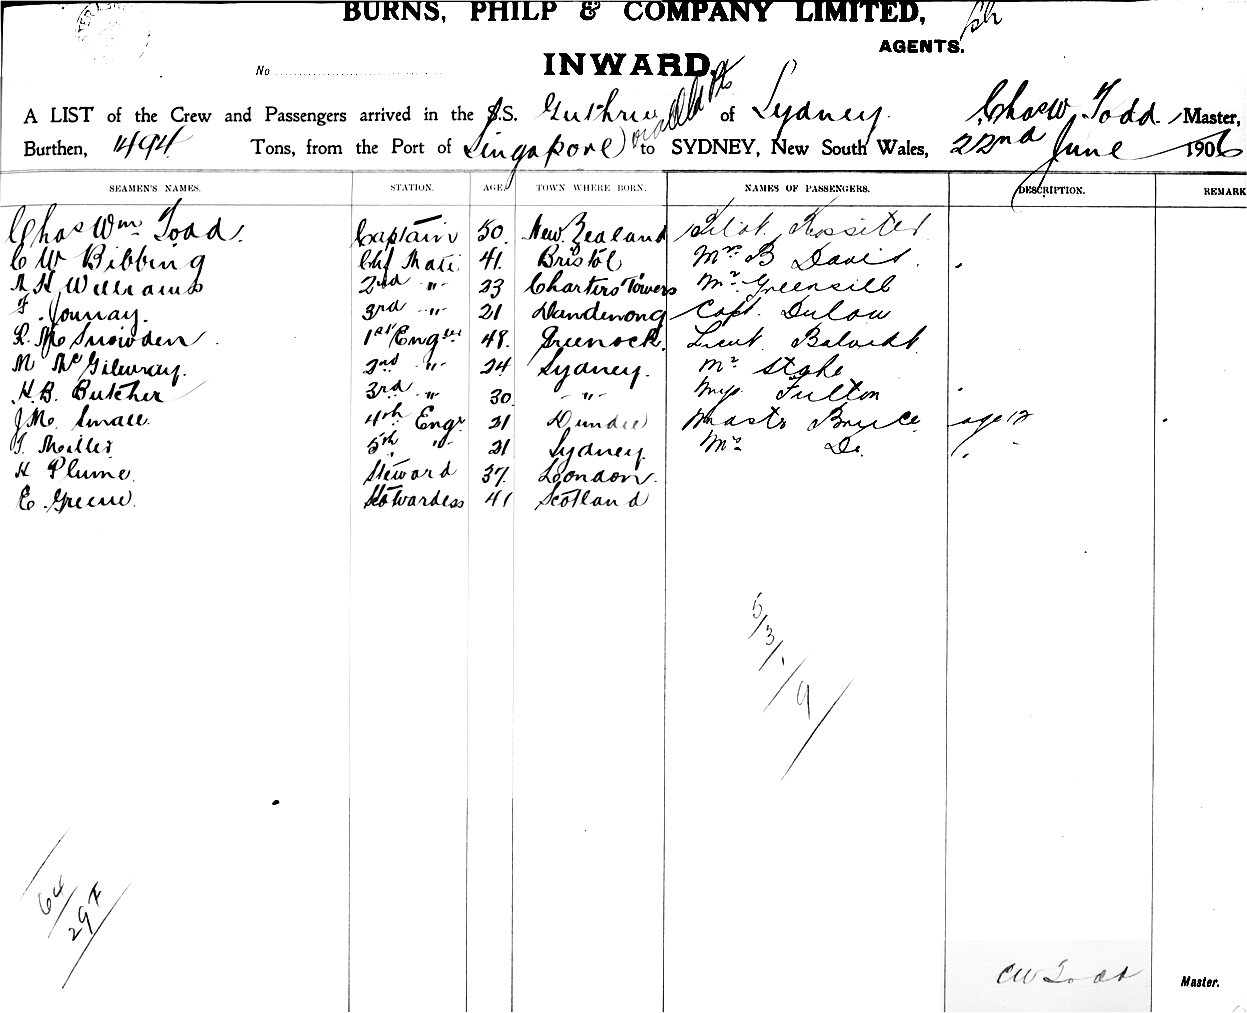 BURNS, PHILP & COMPANY LIMITED,
AGENTS.
INWARD.
No
A LIST of the Crew and Passengers arrived in the S.S. Guthrie of Sydney. Chas W Todd Master,
Burthen, 1494 Tons, from the Port of Singapore to SYDNEY, New South Wales, 22nd June 1906
SEAMEN'S NAMES. STATION. AGE. TOWN WHERE BORN. NAMES OF PASSENGERS. DESCRIPTION. REMARK
Chas Wm Todd. Captain 50. New Zealand Pilot Rossiter
C W Bibbing Chf Mate 41. Bristol Mrs B Davis.
H Williams 2nd " 23 Charters Towers Mr Greensill
F. Journay. 3rd " 21 Dandenong Capt.
R. Mc Snowden 1st Engr 48. Greenock. Lieut.
M McGilvray. 2nd " 24 Sydney. Mr Stake
H. B. Butcher 3rd " 30 " Fulton
J Mc Small 4th Engr 21 Dundee Master Bryce age 12
T. Miller 5th " 21 Sydney. Do.
H Plume Steward 37. London.
E. Greene. Stewardess 41 Scotland
5/3/./9/
64/297
C W Todd
Master.